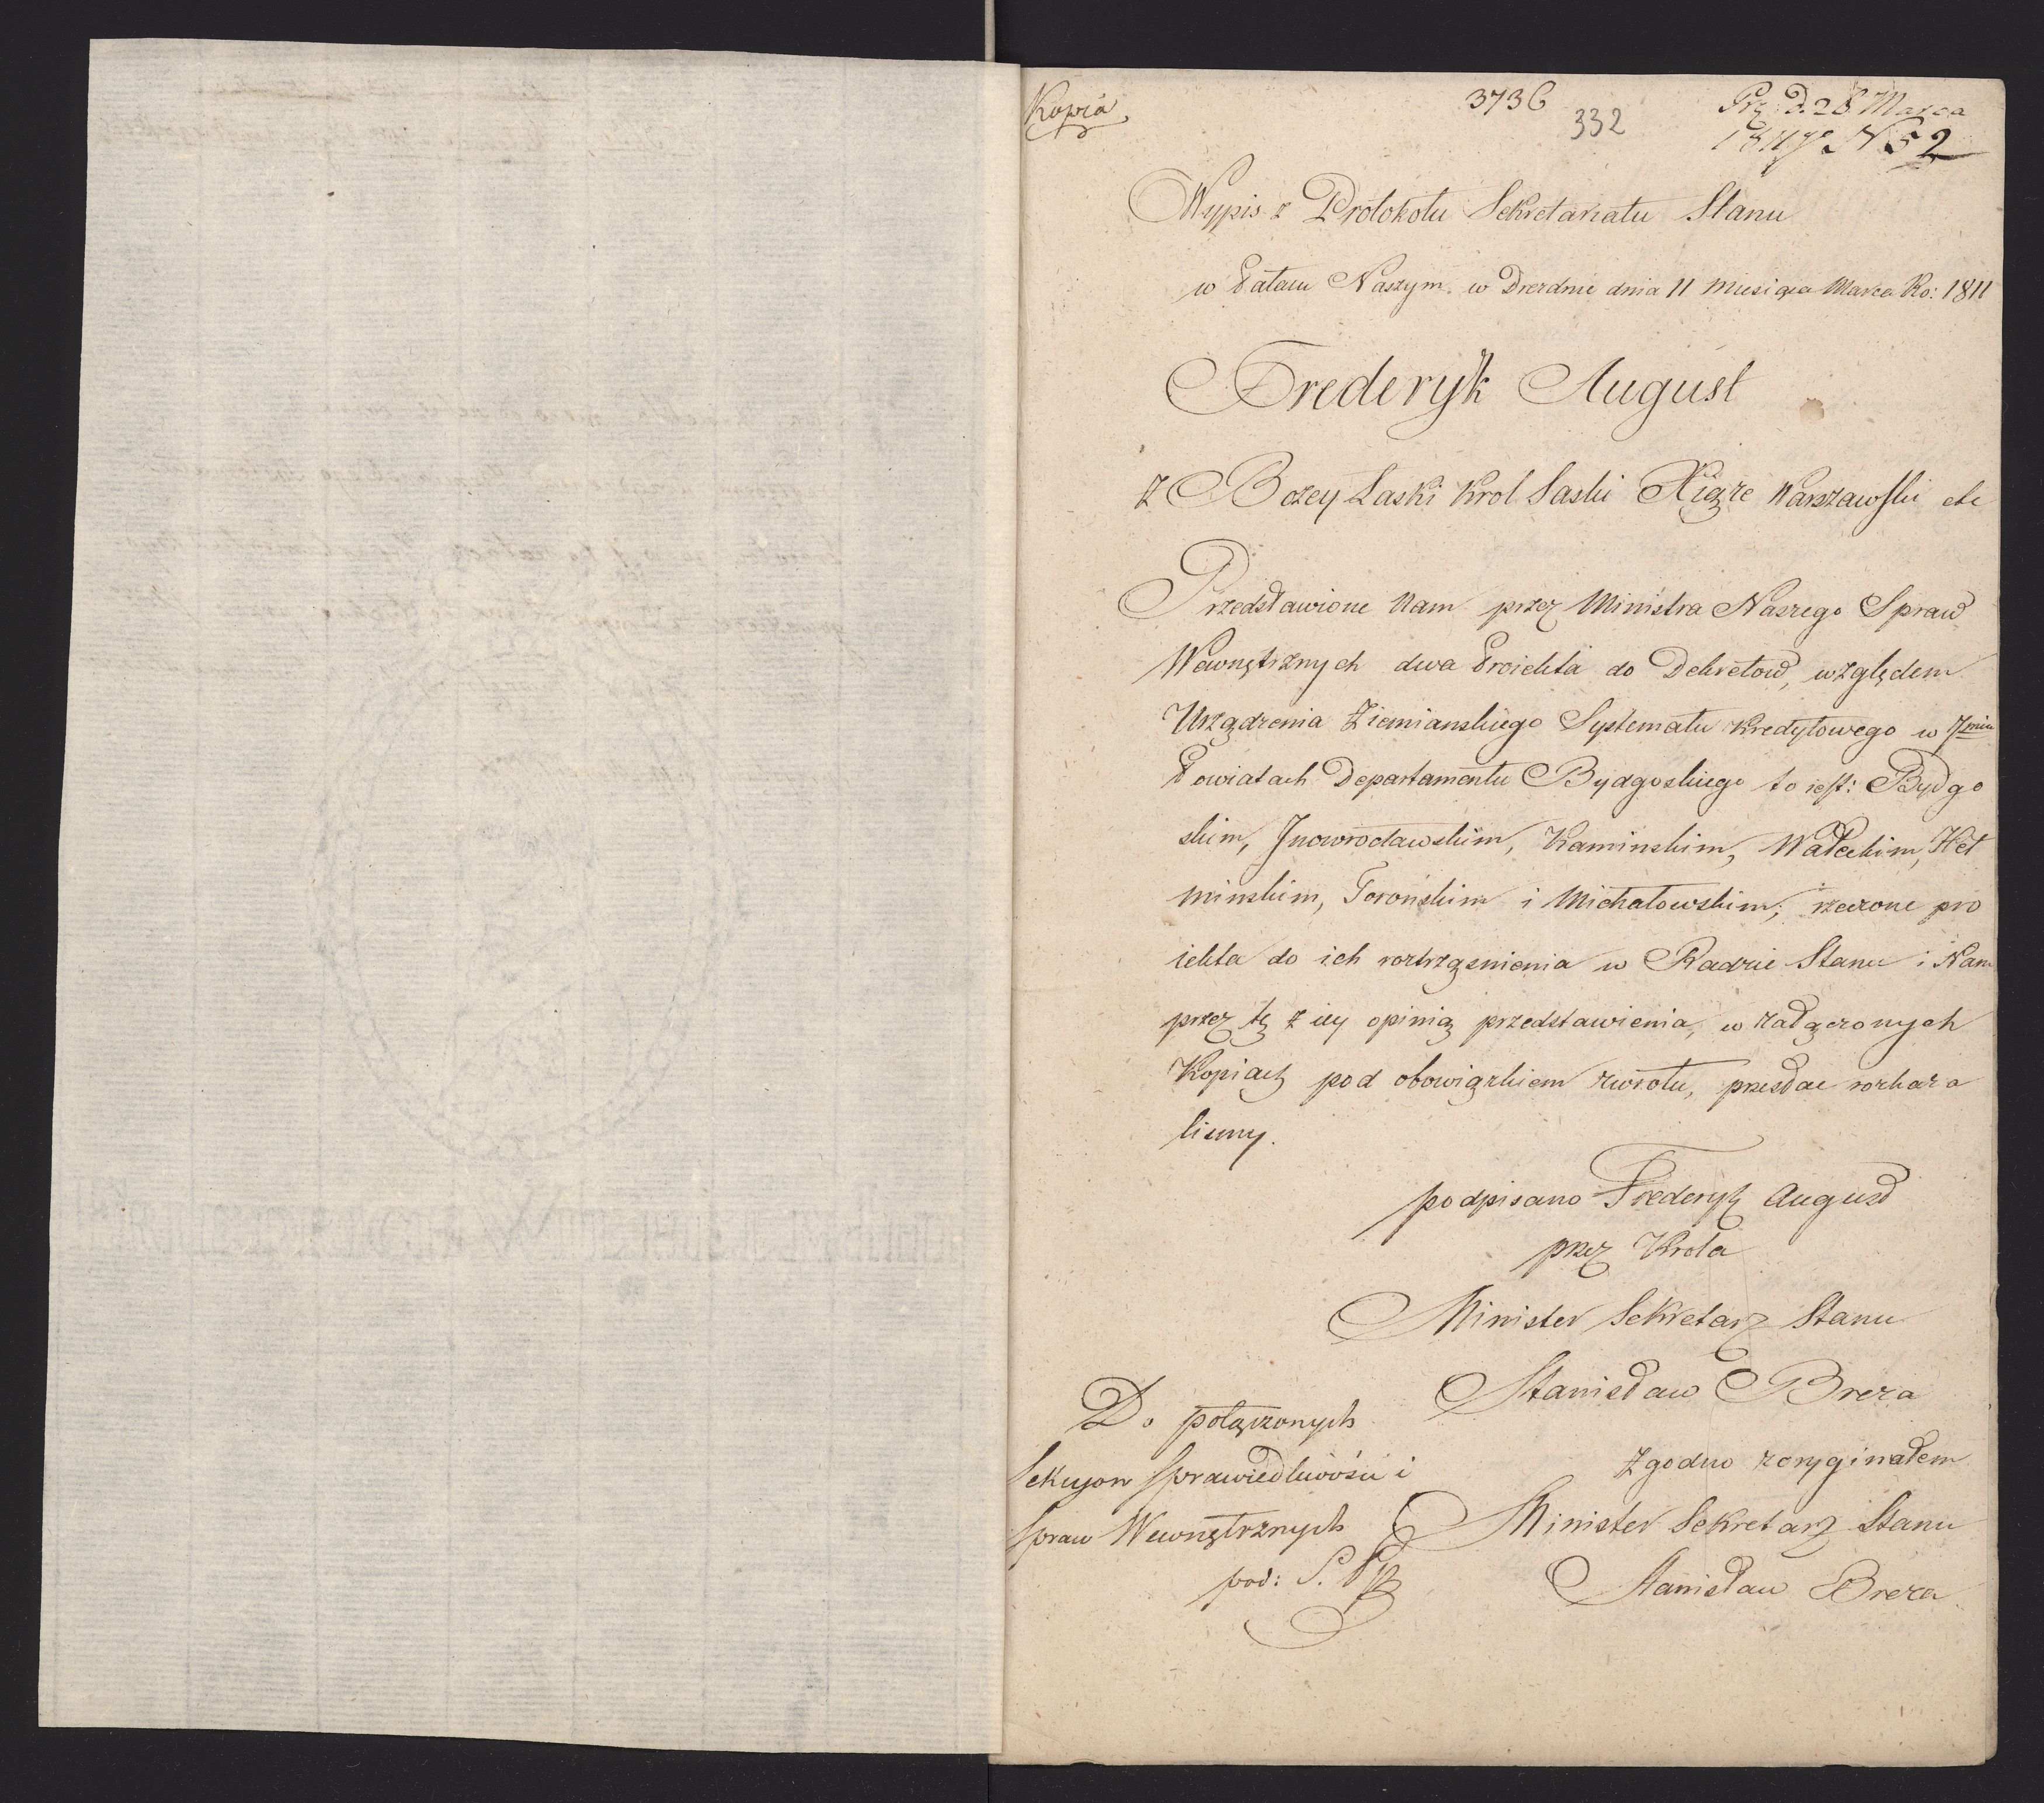 Kopia
3736
332
Prz. D. 28 Marca
1811 go N 52
Wypis z Protokołu Sekretariatu Stanu
w Pałacu Naszym w Dreznie dnia 11 Miesiąca Marca Ro: 1811
Frederyk August
Z Bozey Łaski Krol Saski Xiąze Warszawski etc
Przedstawione Nam przez Ministra Naszego Spraw
Wewnętrznych dwa Proiekta do Dekretow, względem
Urządzenia Ziemianskiego Systematu Kredytowego w 7miu
Powiatach Departamentu Bydgoskiego to iest: Bydgo
skim, Jnowrocławskim, Kaminskim, Wałeckim, Heł
minskim, Torońskim i Michałowskim; rzeczone pro
iekta do ich roztrząsnienia w Radzie Stanu i Nam
przez tę z iey opinią przedstawienia, w załączonych
Kopiach pod obowiązkiem zwrotu, przesłac rozkaza
lismy.
podpisano Frederyk August
przez Krola
Minister Sekretarz Stanu
Stanisław Breza
Do połączonych
Sekcyow Sprawiedliwości i
Spraw Wewnętrznych
pod: S. P.
Zgodno z oryginałem
Minister Sekretarz Stanu
Stanisław Breza